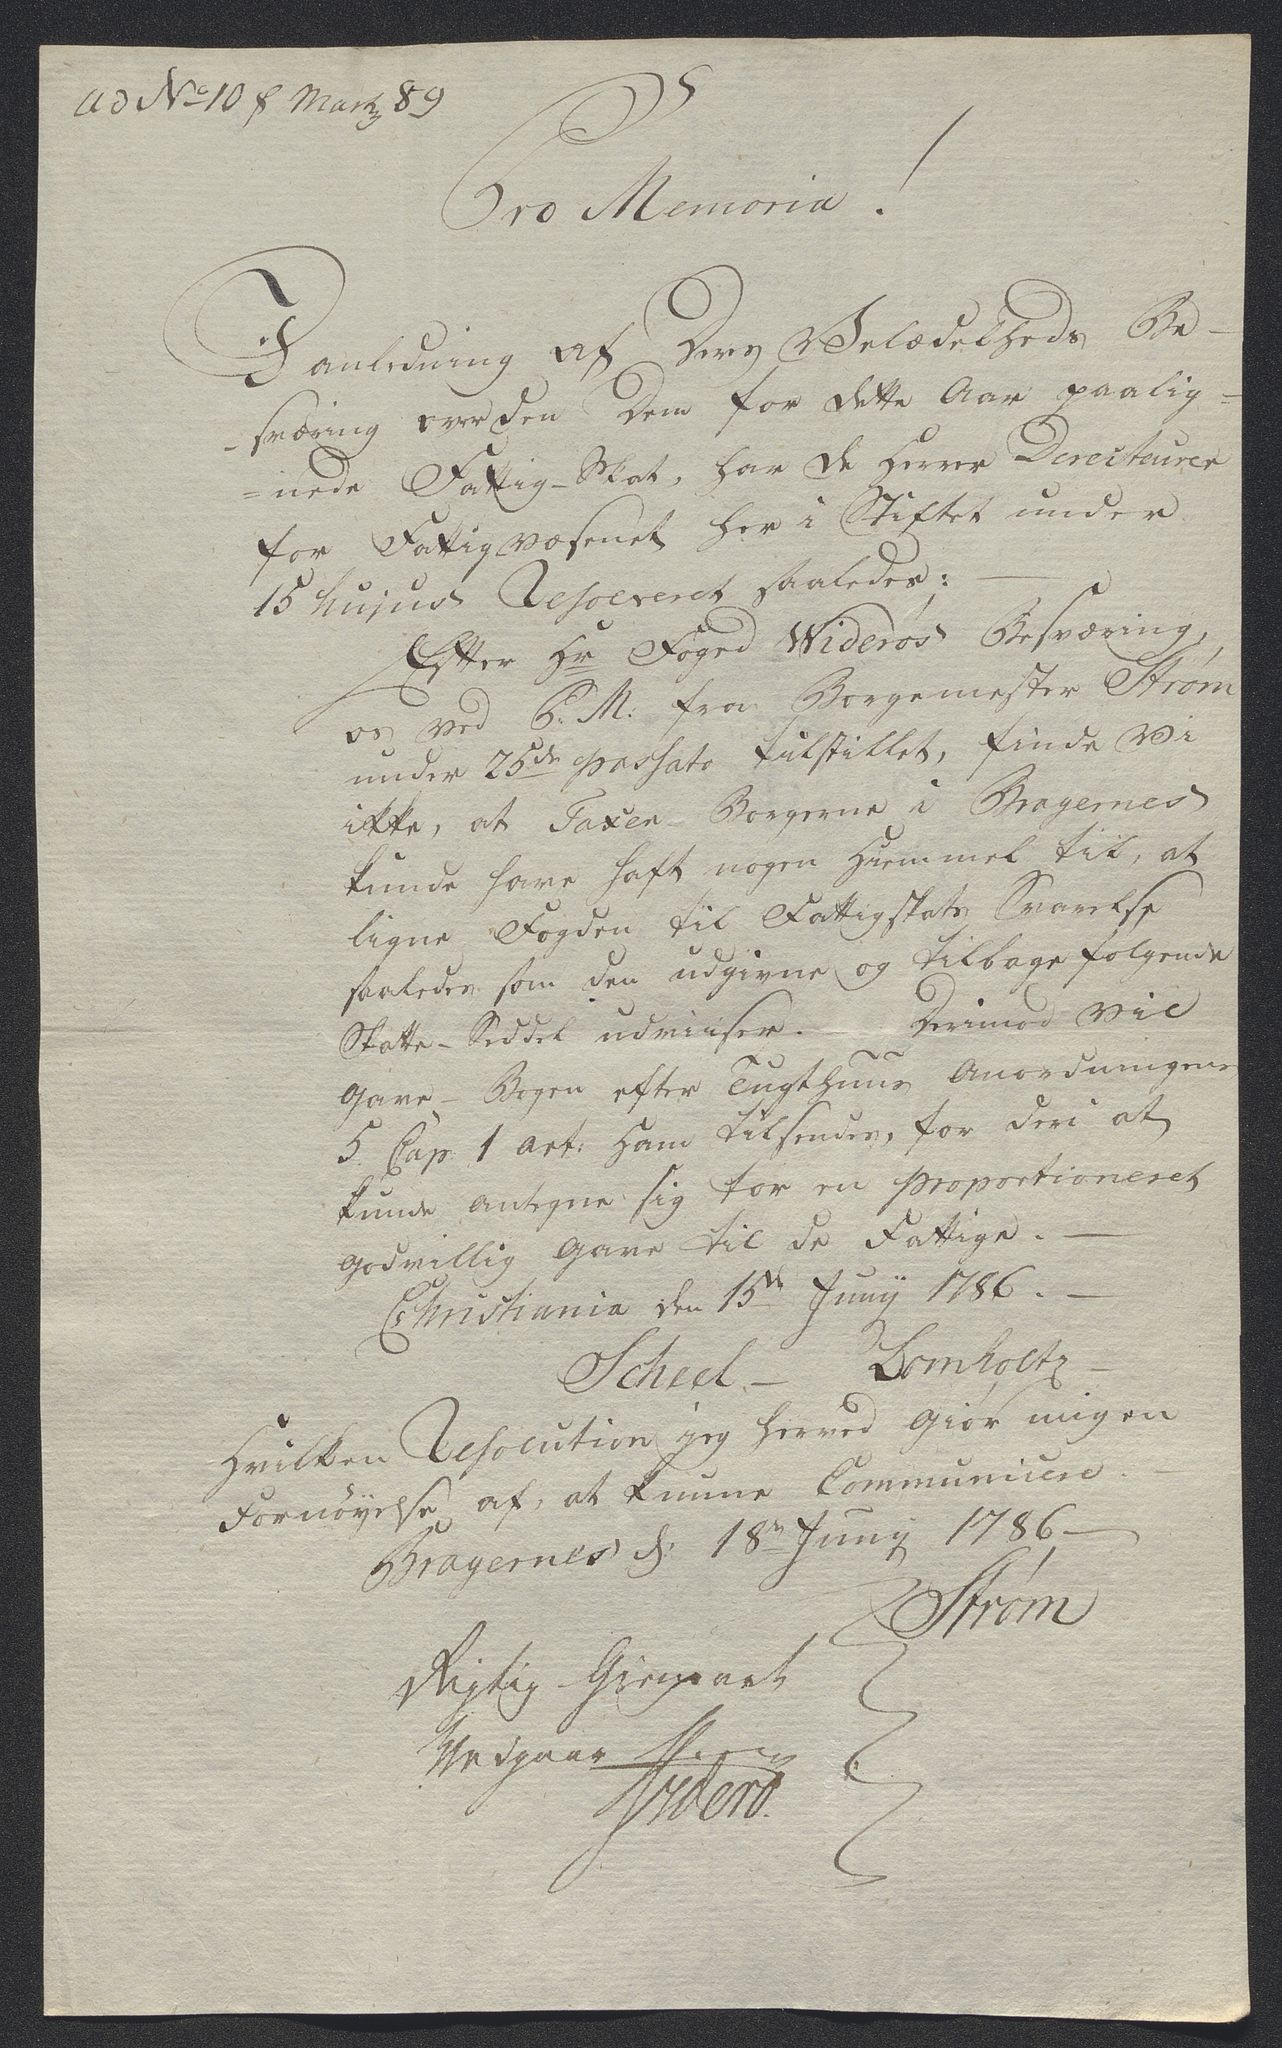 ad No 10 f Martz 89
Pro Memoria!
I anledning af Deres Velædelheds Be-
-sværing over den Dem for dette Aar paalig=
=nede Fattig-Skat, har de Herrer Directeurer
for Fattigvæsenet her i Stiftet under
15 hujus Resolveret saaledes:
Efter Hr Foged Widerøs Besværing,
os ved P. M: fra Borgemester Strøm
under 25de passato tilstillet, finde Vi
ikke, at Taxer Borgerne i Bragernes
kunde have haft nogen Hiemmel til, at
ligne Fogden til Fattigskats Svarelse
saaledes som den udgivne og tilbage følgende
Skatte-Seddel udviiser. Derimod vil
Gave-Bogen efter Tugthuus Anordningens
5 Cap 1 Art: Ham tilsendes, for deri at
kunde antegne sig for en proportioneret
godvillig Gave til de Fattige.
Christiania den 15de Junij 1786.
Scheel - Lomholtz -
Hvilken Resolution jeg herved giør mig en
Fornøyelse af, at kunne Communicere.
Bragernes d: 18n Junij 1786
Strøm
Rigtig Gienpart
Widerø.